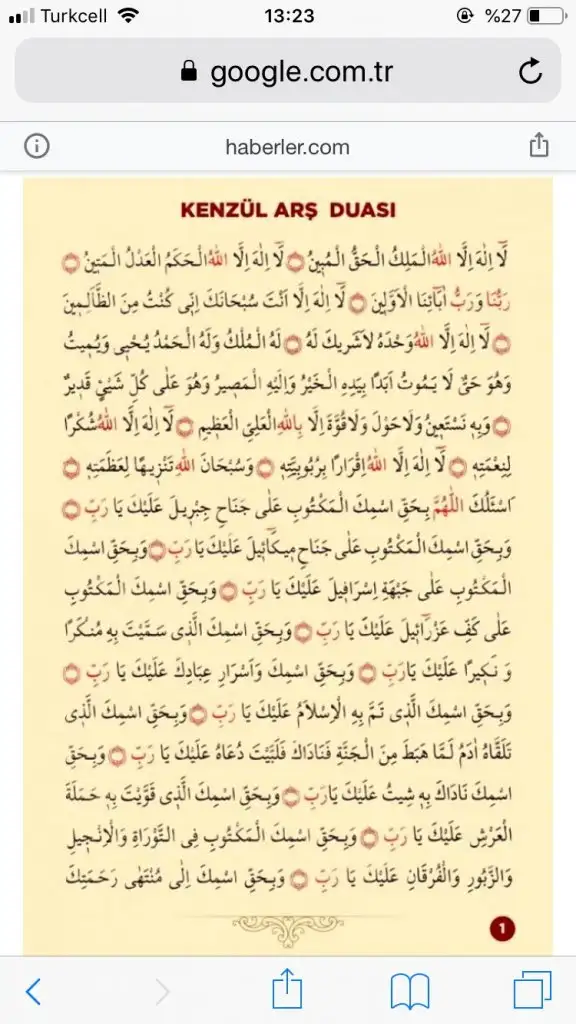 Turkcell 13:23 %27
google.com.tr
haberler.com
KENZÜL ARŞ DUASI
لَٓا اِلٰهَ اِلَّا اللهُ الْمَلِكُ الْحَقُّ الْمُبِينُ ۞ لَٓا اِلٰهَ اِلَّا اللهُ الْحَكَمُ الْعَدْلُ الْمَتِينُ ۞
رَبُّنَا وَرَبُّ اٰبَٓائِنَا الْاَوَّلِينَ ۞ لَٓا اِلٰهَ اِلَّا اَنْتَ سُبْحَانَكَ اِنِّى كُنْتُ مِنَ الظَّالِمِينَ
۞ لَٓا اِلٰهَ اِلَّا اللهُ وَحْدَهُ لَاشَرِيكَ لَهُ ۞ لَهُ الْمُلْكُ وَلَهُ الْحَمْدُ يُحْيِى وَيُمِيتُ
وَهُوَ حَىٌّ لَا يَمُوتُ اَبَدًا بِيَدِهِ الْخَيْرُ وَاِلَيْهِ الْمَصِيرُ وَهُوَ عَلٰى كُلِّ شَيْئٍ قَدِيرٌ
۞ وَبِهِ نَسْتَعِينُ وَلَاحَوْلَ وَلَاقُوَّةَ اِلَّا بِاللهِ الْعَلِىِّ الْعَظِيمِ ۞ لَٓا اِلٰهَ اِلَّا اللهُ شُكْرًا
لِنِعْمَتِهِ ۞ لَٓا اِلٰهَ اِلَّا اللهُ اِقْرَارًا بِرُبُوبِيَّتِهِ ۞ وَسُبْحَانَ اللهِ تَنْزِيهًا لِعَظَمَتِهِ ۞
اَسْئَلُكَ اللّٰهُمَّ بِحَقِّ اسْمِكَ الْمَكْتُوبِ عَلٰى جَنَاحِ جِبْرِيلَ عَلَيْكَ يَا رَبِّ ۞
وَبِحَقِّ اسْمِكَ الْمَكْتُوبِ عَلٰى جَنَاحِ مِيكَٓائِيلَ عَلَيْكَ يَا رَبِّ ۞ وَبِحَقِّ اسْمِكَ
الْمَكْتُوبِ عَلٰى جَبْهَةِ اِسْرَافِيلَ عَلَيْكَ يَا رَبِّ ۞ وَبِحَقِّ اسْمِكَ الْمَكْتُوبِ
عَلٰى كَفِّ عَزْرَٓائِيلَ عَلَيْكَ يَا رَبِّ ۞ وَبِحَقِّ اسْمِكَ الَّذِى سَمَّيْتَ بِهِ مُنْكَرًا
وَ نَكِيرًا عَلَيْكَ يَارَبِّ ۞ وَبِحَقِّ اسْمِكَ وَاَسْرَارِ عِبَادِكَ عَلَيْكَ يَا رَبِّ ۞
وَبِحَقِّ اسْمِكَ الَّذِى تَمَّ بِهِ الْاِسْلَامُ عَلَيْكَ يَا رَبِّ ۞ وَبِحَقِّ اسْمِكَ الَّذِى
تَلَقَّاهُ اٰدَمُ لَمَّا هَبَطَ مِنَ الْجَنَّةِ فَنَادَاكَ فَلَبَّيْتَ دُعَاهُ عَلَيْكَ يَا رَبِّ ۞ وَبِحَقِّ
اسْمِكَ نَادَاكَ بِهِ شِيتُ عَلَيْكَ يَارَبِّ ۞ وَبِحَقِّ اسْمِكَ الَّذِى قَوَّيْتَ بِهِ حَمَلَةَ
الْعَرْشِ عَلَيْكَ يَا رَبِّ ۞ وَبِحَقِّ اسْمِكَ الْمَكْتُوبِ فِى التَّوْرَاةِ وَالْاِنْجِيلِ
وَالزَّبُورِ وَالْفُرْقَانِ عَلَيْكَ يَا رَبِّ ۞ وَبِحَقِّ اسْمِكَ اِلٰى مُنْتَهٰى رَحْمَتِكَ
1